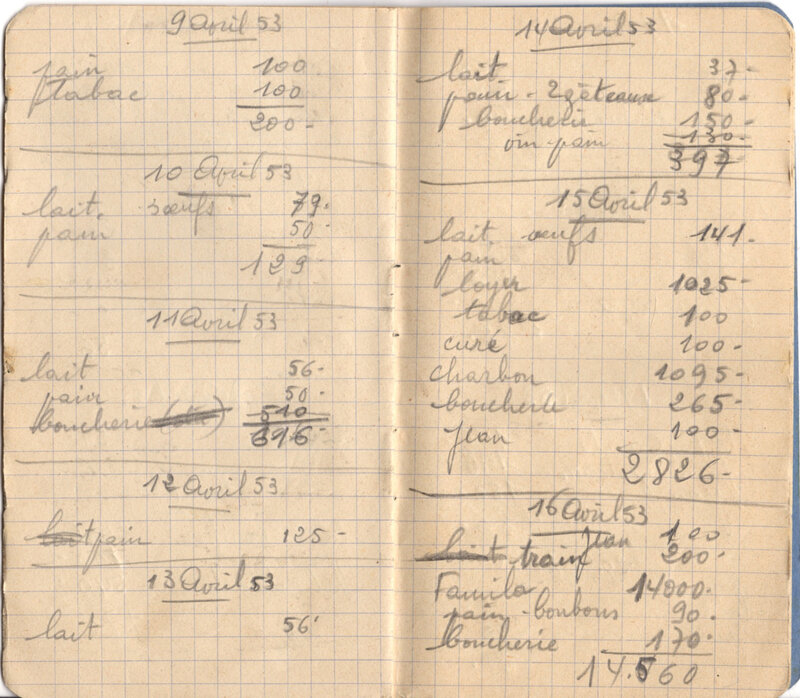 9 Avril 53
pain 100
tabac 100
200-
10 Avril 53
lait. 3 œufs 79.
pain 50-
129
11 Avril 53
lait 56-
pain 50-
boucherie 510
616-
12 Avril 53
pain 125-
13 Avril 53
lait 56'
14 Avril 53
lait. 37-
pain - 2 gâteaux 80-
boucherie 150-
vin-pain 130-
397
15 Avril 53
lait œufs 141-
pain
loyer 1025-
tabac 100
curé 100-
charbon 1095-
boucherie 265-
Jean 100-
2826-
16 Avril 53
Jean 100
train 200-
Familo 14000.
pain-bonbons 90-
boucherie 170-
14.560